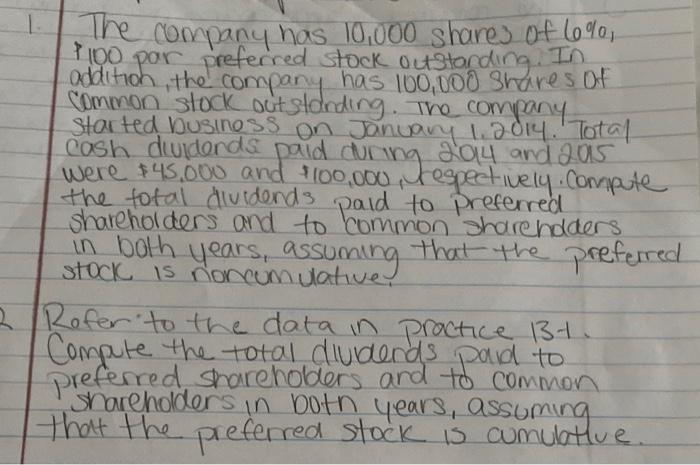 1. The company has 10,000 shares of 6%,
$100 par preferred stock outstanding. In
addition, the company has 100,000 shares of
common stock outstanding. The company
started business on January 1, 2014. Total
cash dividends paid during 2014 and 2015
were $45,000 and $100,000, respectively. Compute
the total dividends paid to preferred
shareholders and to common shareholders
in both years, assuming that the preferred
stock is noncumulative.
2 Refer to the data in practice 13-1.
Compute the total dividends paid to
preferred shareholders and to common
shareholders in both years, assuming
that the preferred stock is cumulative.